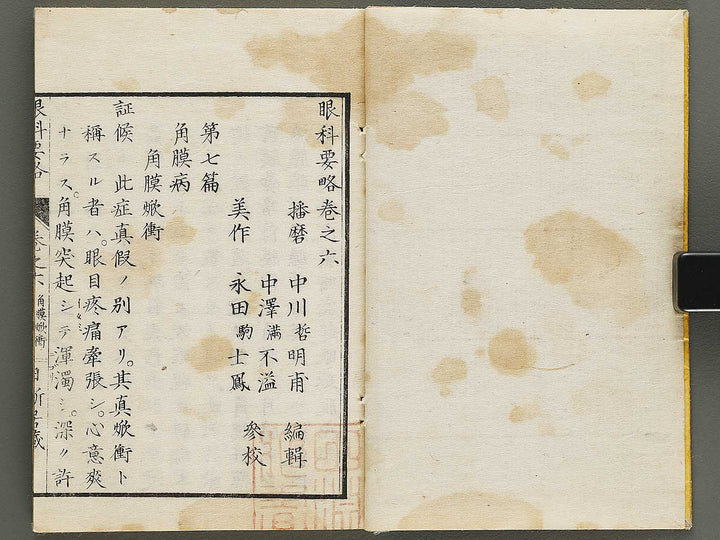 眼科要略卷之六
播磨 中川哲明甫 編輯
中澤滿不溢
美作 永田駒士鳳 參校
第七篇
角膜病
角膜焮衝
証候 此症真假ノ別アリ。其真焮衝ト
稱スル者ハ。眼目疼痛牽張シ。心意爽
ナラス。角膜突起シテ渾濁シ。深ク許
眼科要略 卷之六 角膜焮衝